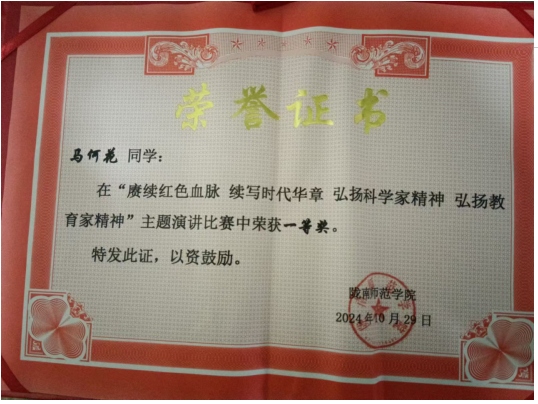 荣誉证书
马何花 同学：
在“赓续红色血脉 续写时代华章 弘扬科学家精神 弘扬教
育家精神”主题演讲比赛中荣获一等奖。
特发此证，以资鼓励。
陇南师范学院
2024年10月29日